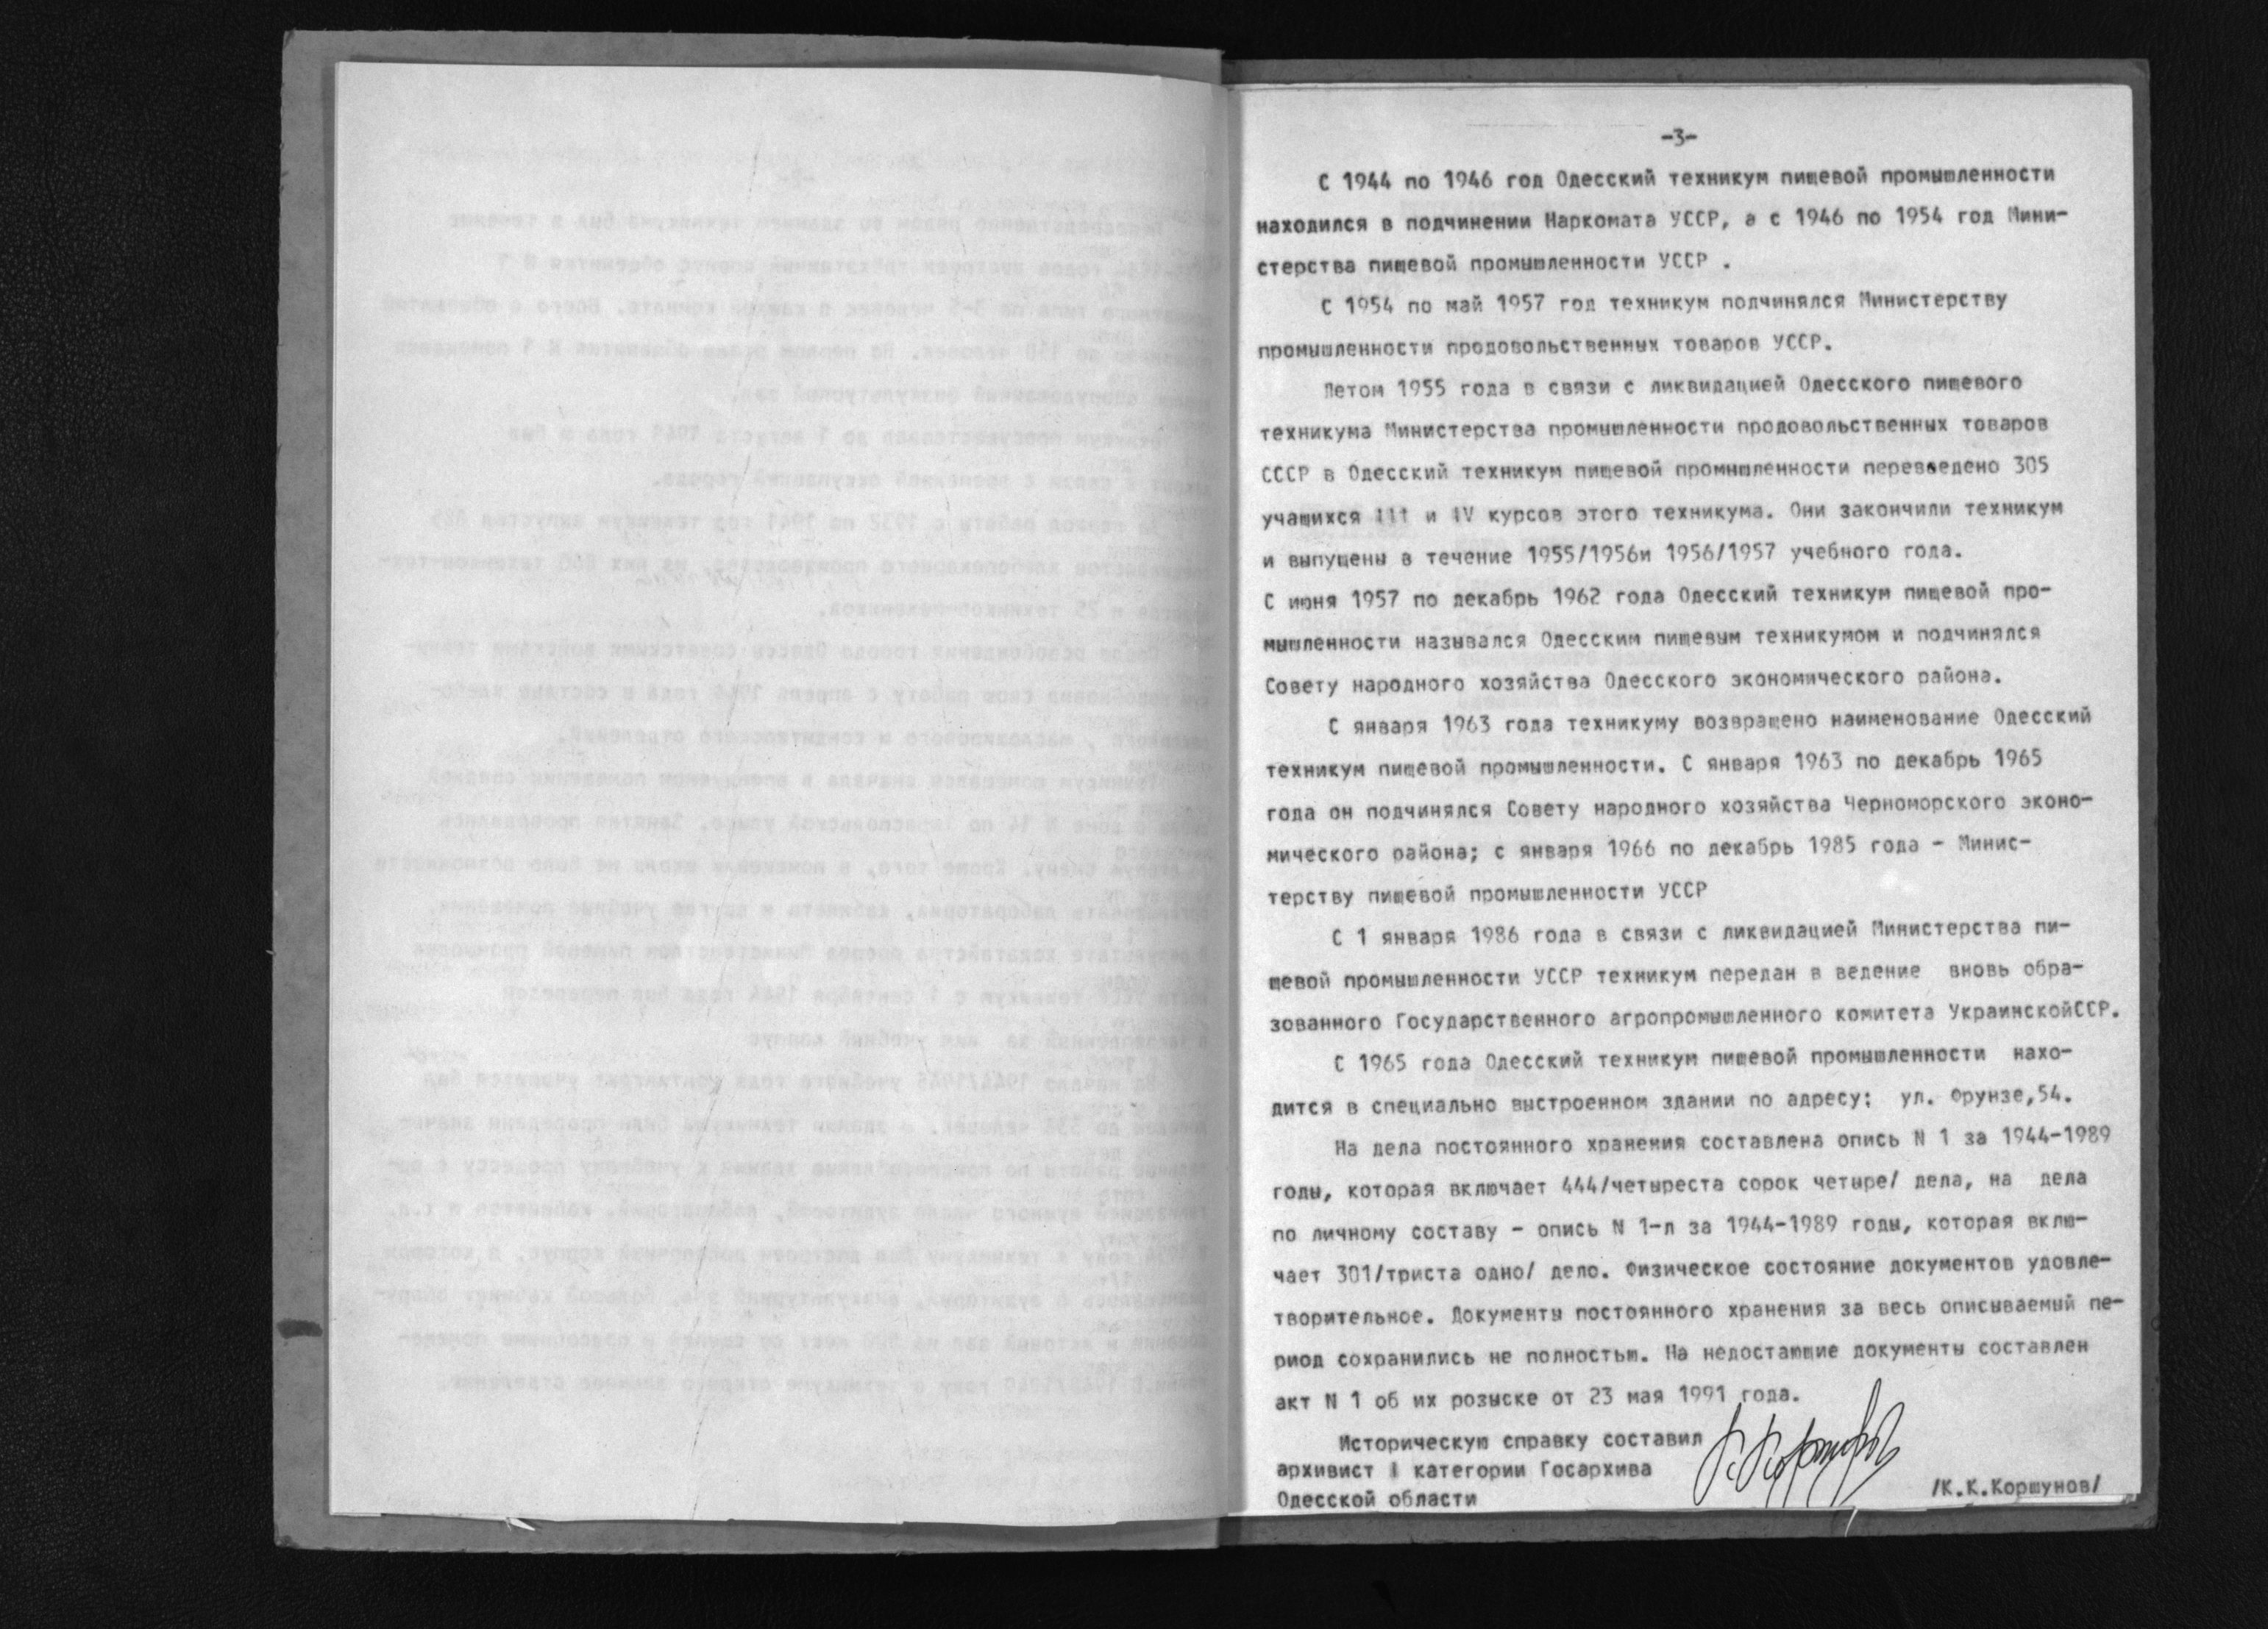 -3-
С 1944 по 1946 год Одесский техникум пищевой промышленности
находился в подчинении Наркомата УССР, а с 1946 по 1954 год Мини-
стерства пищевой промышленности УССР .
С 1954 по май 1957 год техникум подчинялся Министерству
промышленности продовольственных товаров УССР.
Летом 1955 года в связи с ликвидацией Одесского пищевого
техникума Министерства промышленности продовольственных товаров
СССР в Одесский техникум пищевой промышленности переведено 305
учащихся III и IV курсов этого техникума. Они закончили техникум
и выпущены в течение 1955/1956и 1956/1957 учебного года.
С июня 1957 по декабрь 1962 года Одесский техникум пищевой про-
мышленности назывался Одесским пищевым техникумом и подчинялся
Совету народного хозяйства Одесского экономического района.
С января 1963 года техникуму возвращено наименование Одесский
техникум пищевой промышленности. С января 1963 по декабрь 1965
года он подчинялся Совету народного хозяйства Черноморского эконо-
мического района; с января 1966 по декабрь 1985 года - Минис-
терству пищевой промышленности УССР
С 1 января 1986 года в связи с ликвидацией Министерства пи-
щевой промышленности УССР техникум передан в ведение вновь обра-
зованного Государственного агропромышленного комитета УкраинскойССР.
С 1965 года Одесский техникум пищевой промышленности нахо-
дится в специально выстроенном здании по адресу: ул. Фрунзе,54.
На дела постоянного хранения составлена опись N 1 за 1944-1989
годы, которая включает 444/четыреста сорок четыре/ дела, на дела
по личному составу - опись N 1-л за 1944-1989 годы, которая вклю-
чает 301/триста одно/ дело. Физическое состояние документов удовле-
творительное. Документы постоянного хранения за весь описываемый пе-
риод сохранились не полностью. На недостающие документы составлен
акт N 1 об их розыске от 23 мая 1991 года.
Историческую справку составил
архивист I категории Госархива
Одесской области /К.К.Коршунов/